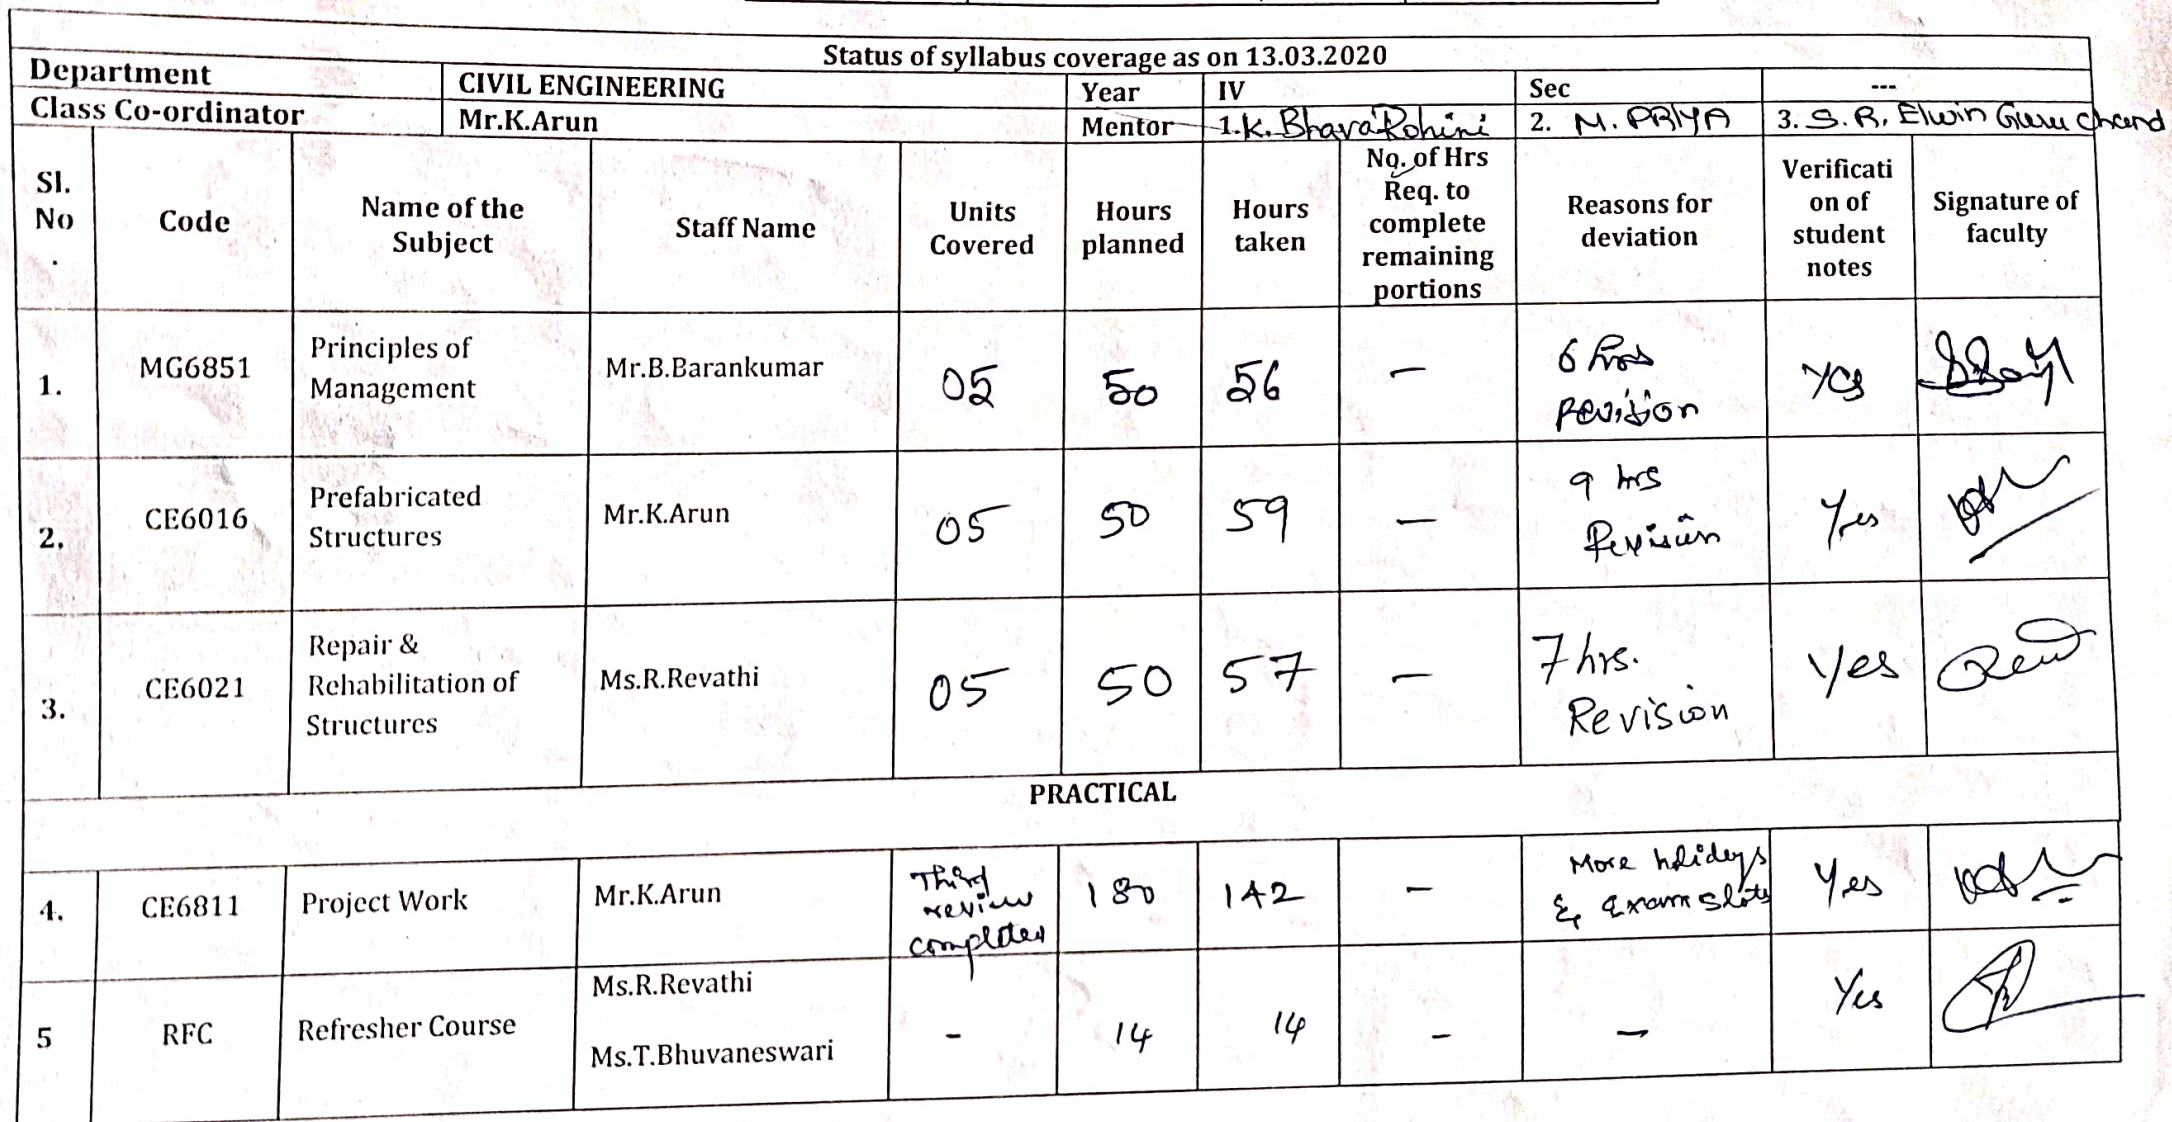 Status of syllabus coverage as on 13.03.2020
Department CIVIL ENGINEERING Year IV Sec ---
Class Co-ordinator Mr.K.Arun Mentor 1.K. BhavaRohini 2. M. PRIYA 3. S. R. Elwin Guru Chand
Sl. No . Code Name of the Subject Staff Name Units Covered Hours planned Hours taken No. of Hrs Req. to complete remaining portions Reasons for deviation Verificati on of student notes Signature of faculty
1. MG6851 Principles of Management Mr.B.Barankumar 05 50 56 – 6 hrs Revision Yes
2. CE6016 Prefabricated Structures Mr.K.Arun 05 50 59 – 9 hrs Revision Yes
3. CE6021 Repair & Rehabilitation of Structures Ms.R.Revathi 05 50 57 – 7 hrs. Revision Yes
PRACTICAL
4. CE6811 Project Work Mr.K.Arun Third review completed 180 142 – More holidays & exam slots Yes
5 RFC Refresher Course Ms.R.Revathi Ms.T.Bhuvaneswari - 14 14 – – Yes